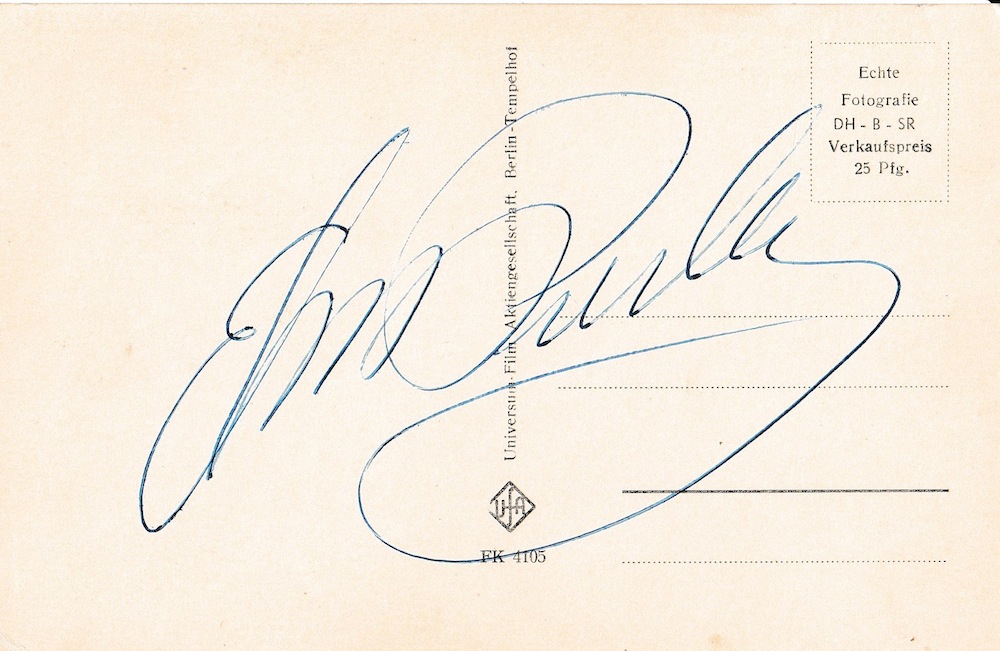 Echte
Fotografie
DH - B - SR
Verkaufspreis
25 Pfg.
Universum-Film Aktiengesellschaft, Berlin-Tempelhof
UFA
FK 4105